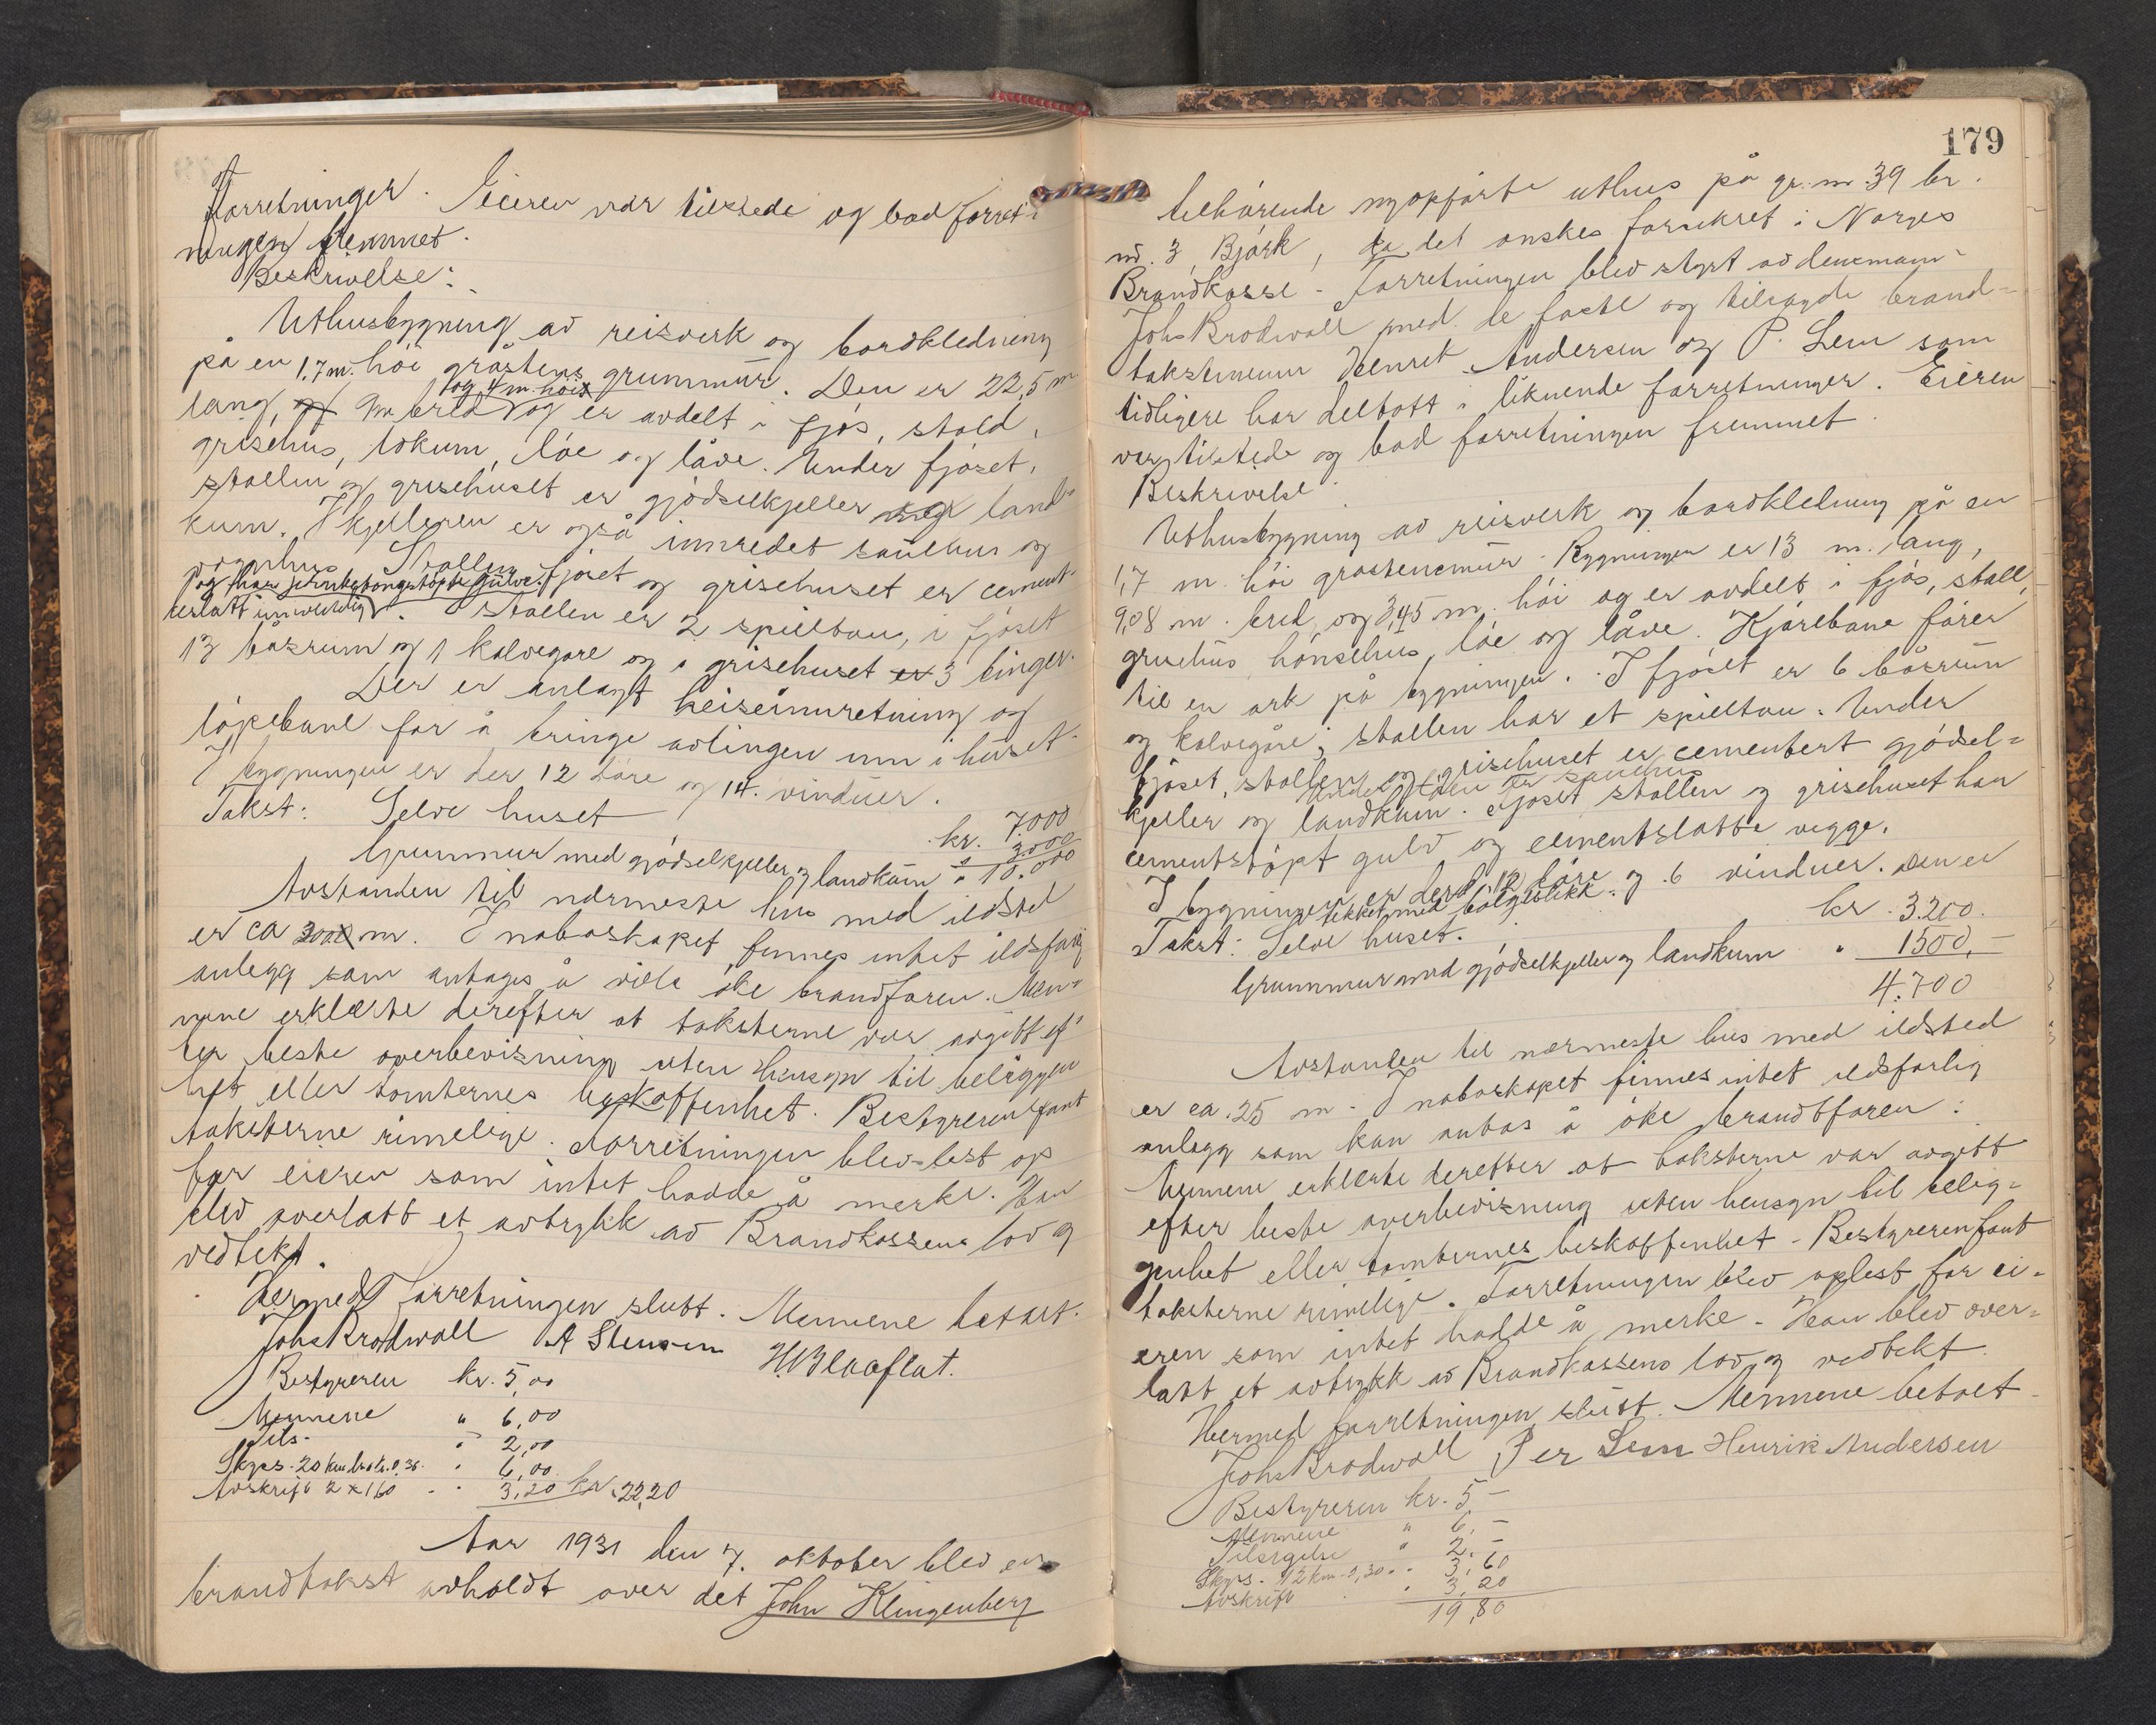 Forretninger. Eieren var tilstede og bad forret-
ningen fremmet.
Beskrivelse:
Uthusbygning av reisverk og bordkledning
på en 1,7 m. höi gråstens grunnmur. Den er 22,5 m
lang, 9 m bred og 4 m. höi og er avdelt i fjös, stald,
grisehus, lokum, löe og låve. Under fjöset,
stallen og grisehuset er gjödselkjeller og land-
kum. I kjelleren er også innredet sauehus og
vognhus. Stallen, fjöset og grisehuset er cement-
og har jernbetongstöpte gulve.
slått innvendig. I stallen er 2 spilltau, i fjöset
13 båsrum og 1 kalvegare og i grisehuset er 3 binger.
Der er anlagt heiseinnretning og
löpebane for å bringe avlingen inn i huset.
I bygningen er der 12 döre og 14. vinduer.
Takst: Selve huset kr. 7.000
Grunnmur med gjödselkjeller og landkum " 3.000
" 10.000
Avstanden til nærmeste hus med ildsted
er ca m. I naboskapet finnes intet ildsfarlig
anlegg som antages å ville öke brandfaren. Men-
nene erklærte derefter at taksterne var avgitt ef-
ter beste overbevisning uten hensyn til beliggen-
het eller tomternes beskaffenhet. Bestyreren fant
taksterne rimelige. Forretningen blev lest op
for eieren som intet hadde å merke. Han
blev overlatt et avtrykk av Brandkassens lov og
vedtekt.
Hermed forretningen slutt. Mennene betalt.
Johs Brodwall A Stensen H. Blaaflat.
Bestyreren kr. 5,00
Mennene " 6,00
Tils. " 2,00
Skyss. 20 km " 6,00
Avskrift 2 x 1,60 " 3,20 kr. 22,20
Aar 1931 den 7. oktober blev en
brandtakst avholdt over det John Klingenberg
179
tilhörende nyopförte uthus på gr. nr. 39 br.
nr. 3, Björk, da det önskes forsikret i Norges
Brandkasse. Forretningen blev styrt av lensmann
Johs Brodwall med de faste og tilsagde brand-
takstmenn Henrik Andersen og P. Lem som
tidligere har deltatt i liknende forretninger. Eieren
var tilstede og bad forretningen fremmet.
Beskrivelse:
Uthusbygning av reisverk og bordkledning på en
1,7 m. höi gråstensmur. Bygningen er 13 m. lang,
9,08 m. bred og 3,45 m. höi og er avdelt i fjös, stall,
grisehus, hönsehus, löe og låve. Kjörebane förer
til en ark på bygningen. I fjöset er 6 båsrum
og kalvegare; stallen har et spilltau. Under
fjöset, stallen og grisehuset er cementert gjödsel-
Under löen er sauehus
kjeller og landkum. Fjöset stallen og grisehuset har
cementstöpt gulv og cementslatte vegge.
I bygningen er der 12 döre og 6 vinduer. Den er
tekket med bölgeblikk.
Takst: Selve huset. kr. 3.200.
Grunnmur med gjödselkjeller og landkum " 1500,-
4.700
Avstanden til nærmeste hus med ildsted
er ca. 25 m. I naboskapet finnes intet ildsfarlig
anlegg som kan antas å öke brandfaren.
Mennene erklærte derefter at taksterne var avgitt
efter beste overbevisning uten hensyn til belig-
genhet eller tomternes beskaffenhet. Bestyreren fant
taksterne rimelige. Forretningen blev oplest for ei-
eren som intet hadde å merke. Han blev over-
latt et avtrykk av Brandkassens lov og vedtekt.
Hermed forretningen slutt. Mennene betalt.
Johs Brodwall Per Lem Henrik Andersen
Bestyreren kr. 5,-
Mennene " 6,-
Tilsigelse " 2,-
Skyss. 12 km 0,30 " 3,60
Avskrift " 3,20
19,80